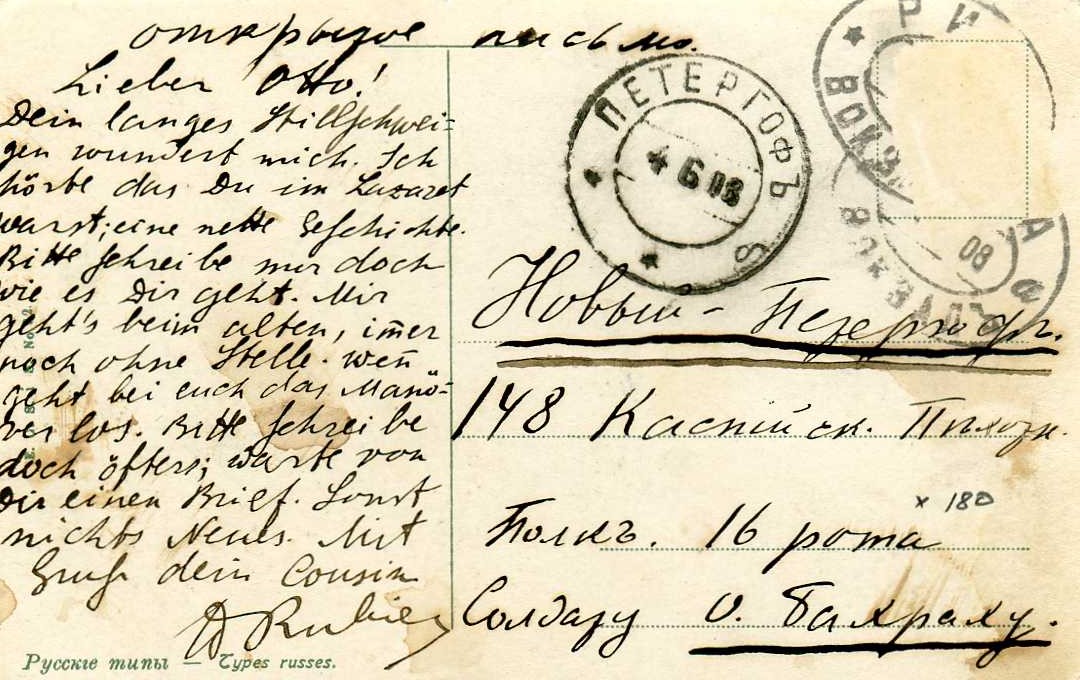 открытое письмо.
Lieber Otto!
Dein langes Stillschwei=
gen wundert mich. Ich
hörte das Du im Lazaret
warst; eine nette Geschichte.
Bitte schreibe mir doch
wie es Dir geht. Mir
geht's beim alten, im̅er
noch ohne Stelle. wen̅
geht bei euch das Manö=
ver los. Bitte schreibe
doch öfters; warte von
Dir einen Brief. Sonst
nichts Neues. Mit
Gruß dein Cousin
Русскіе типы — Types russes.
ПЕТЕРГОФЪ
4 6 08
8
РИ
ВОКЗ
ВОКЗАЛЪ
08
Новый - Петергофъ.
148 Каспійск. Пѣхотн.
Полкъ. 16 рота
x 180
Солдату О. Бахраху.